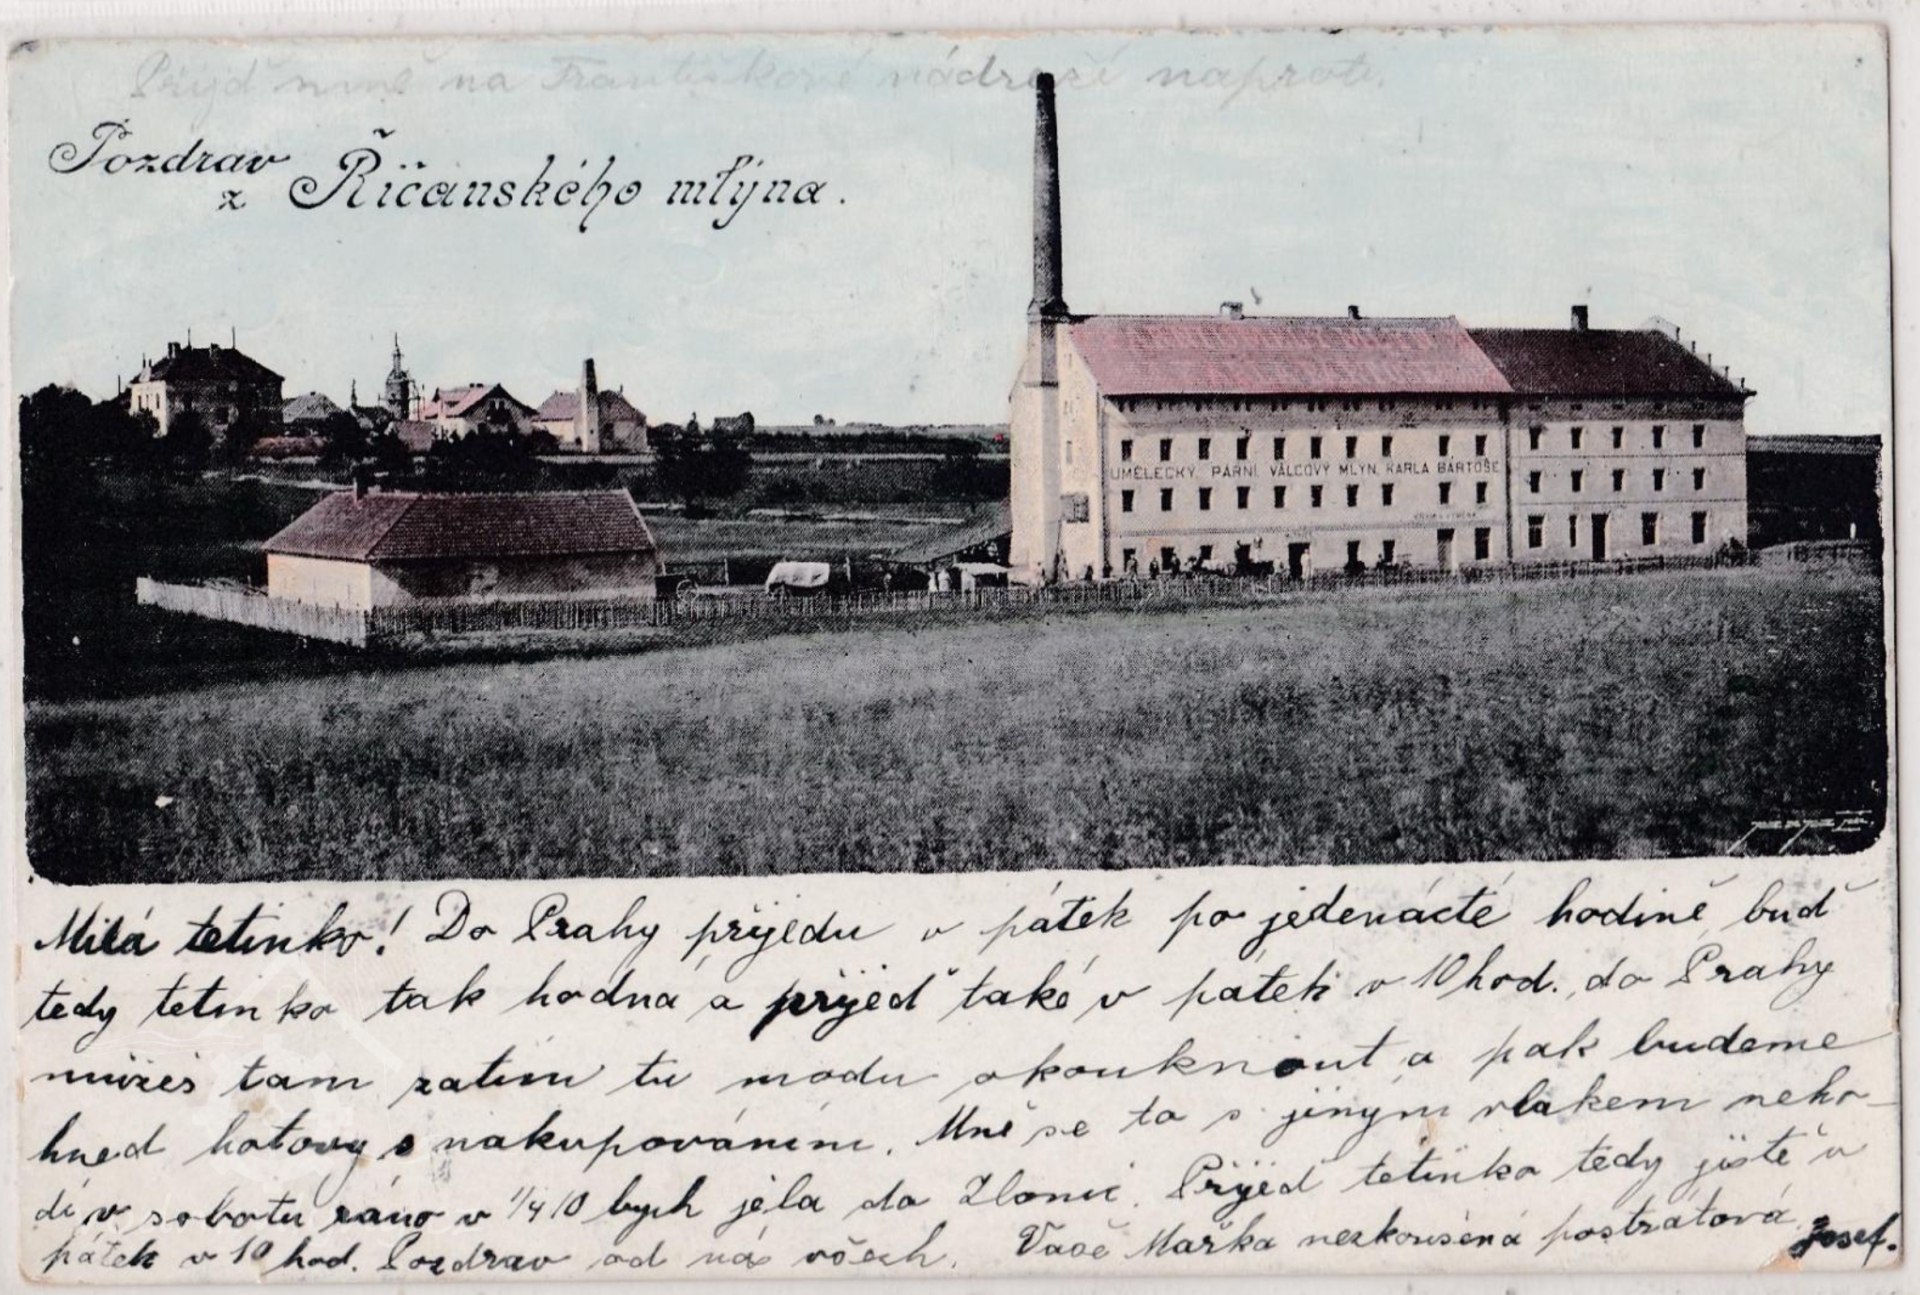 Přijď mně na Františkové nádraží naproti.
Pozdrav
z Řičanského mlýna.
UMĚLECKÝ PARNÍ VÁLCOVÝ MLÝN KARLA BARTOŠE
Milá tetinko! Do Prahy přijedu v pátek po jedenácté hodině, buď
tedy tetinko tak hodná a přijeď také v pátek v 10 hod. do Prahy
můžeš tam zatím tu modu okouknout a pak budeme
hned hotovy s nakupováním. Mně se to s jiným vlakem neho-
dí v sobotu ráno v 1/4 10 bych jela do Zlonic. Přijeď tetinko tedy jistě v
pátek v 10 hod. Pozdrav od nás všech. Vaše Mařka nezkoušená postrátová
Josef.